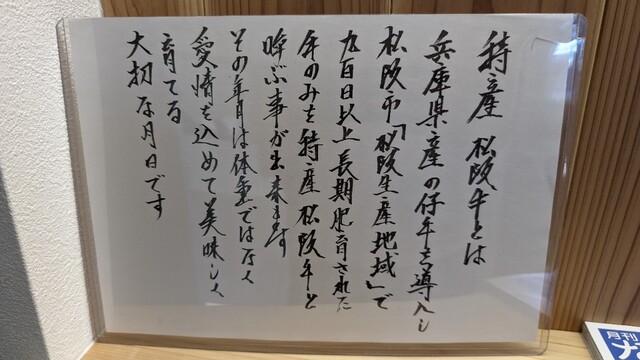 特産 松阪牛とは
兵庫県産の仔牛を導入し
松阪市「松阪生産地域」で
九百日以上長期肥育された
牛のみを特産松阪牛と
呼ぶ事が出来ます
その年月は体重ではなく
愛情を込めて美味しく
育てる
大切な月日です
月刊